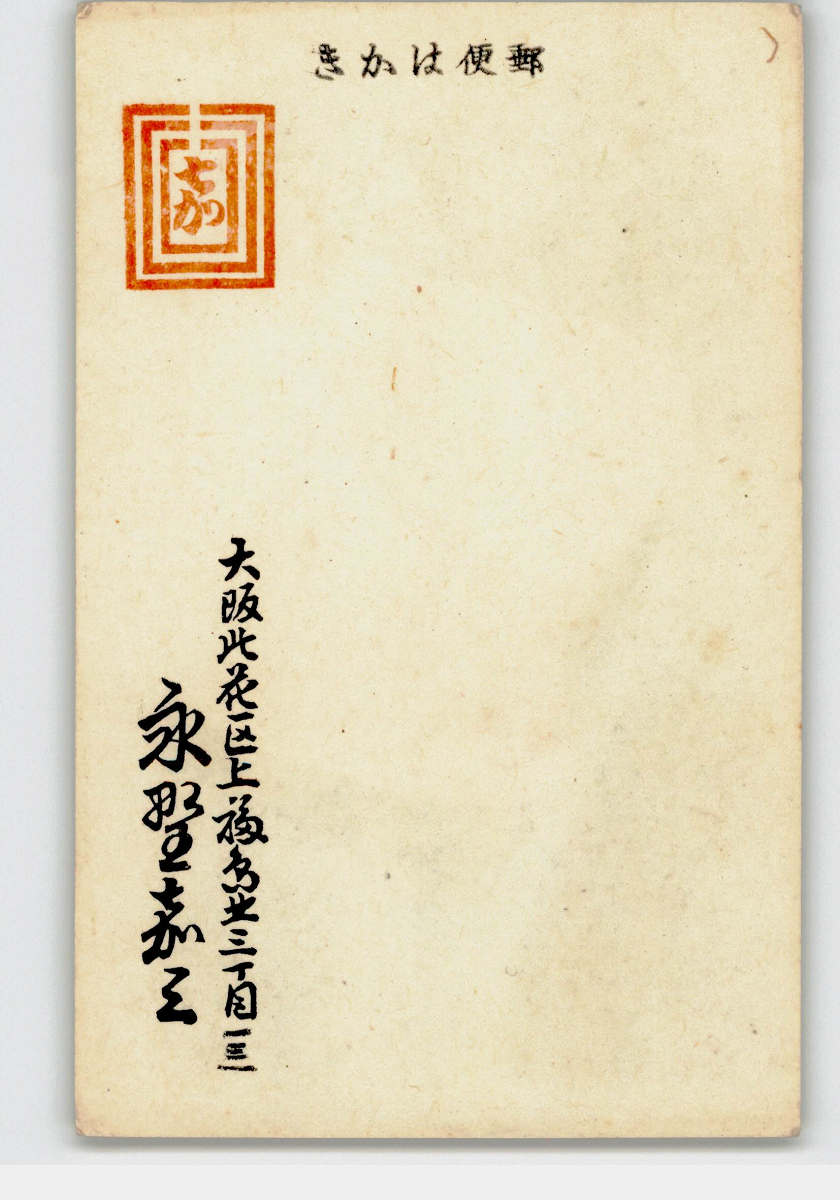 郵便はかき
嘉
大阪此花区上福島北三丁目一三
永野嘉三